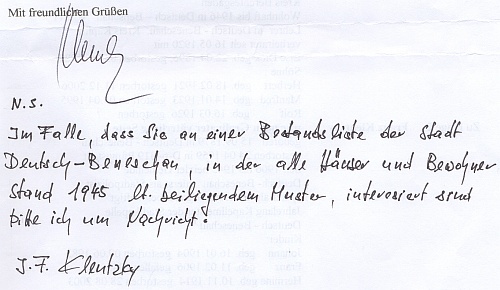 Mit freundlichen Grüßen
N.S.
Im Falle, dass Sie an einer Bestandsliste der Stadt
Deutsch-Beneschau, in der alle Häuser und Bewohner
Stand 1945 lt. beiliegendem Muster, interesiert sind
bitte ich um Nachricht!
J.F. Klentzky